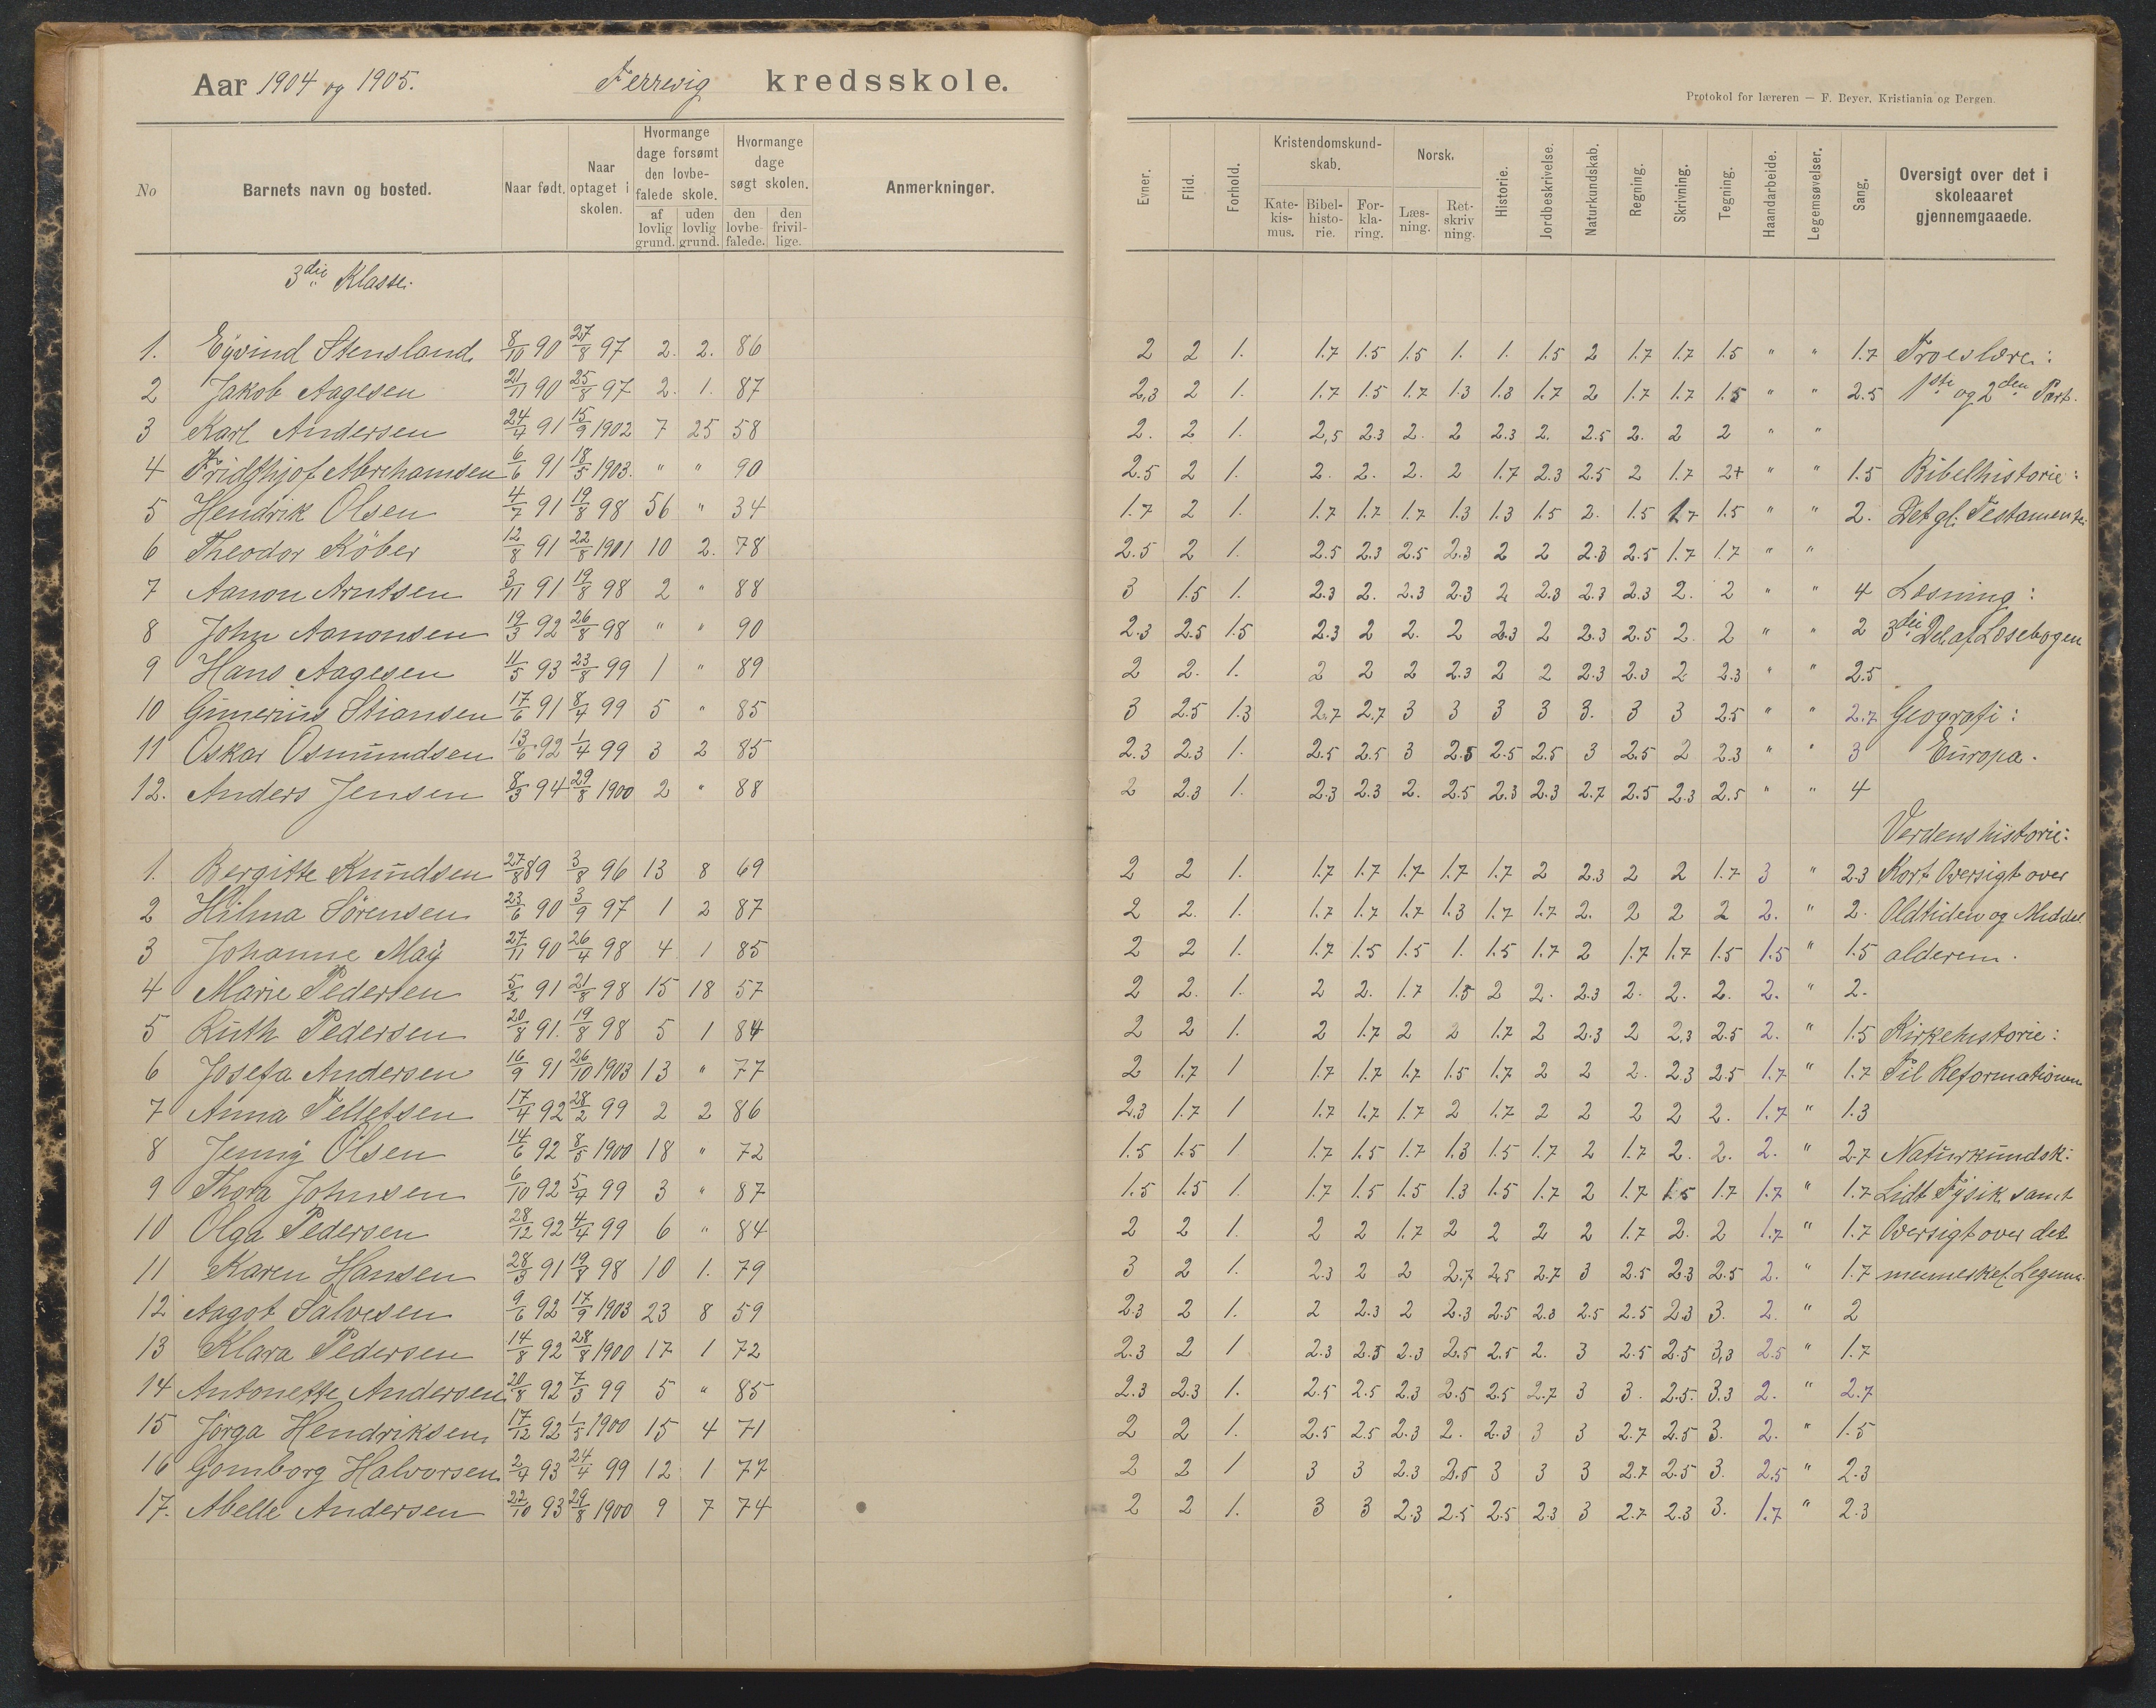 Aar 1904 og 1905. Ferrevig kredsskole.
Protokol for læreren — F. Beyer, Kristiania og Bergen.
No Barnets navn og bosted. Naar født. Naar optaget i skolen. Hvormange dage forsømt den lovbefalede skole. af lovlig grund. uden lovlig grund. Hvormange dage søgt skolen. den lovbefalede. den frivillige. Anmerkninger.
Evner. Flid. Forhold. Kristendomskundskab. Katekismus. Bibelhistorie. Forklaring. Norsk. Læsning. Retskrivning. Historie. Jordbeskrivelse. Naturkundskab. Regning. Skrivning. Tegning. Haandarbeide. Legemsøvelser. Sang. Oversigt over det i skoleaaret gjennemgaaede.
3die Klasse.
1. Eÿvind Stensland 8/10 90 27/8 97 2. 2. 86 2 2 1. 1.7 1.5 1.5 1. 1. 1.5 2 1.7 1.7 1.5 " " 1.7 Troeslære:
2 Jakob Aagesen 21/11 90 25/8 97 2. 1. 87 2,3 2 1. 1.7 1.5 1.7 1.3 1.3 1.7 2 1.7 1.7 1.5 " " 2.5 1ste og 2den Part.
3 Karl Andersen 24/4 91 15/9 1902 7 25 58 2. 2 1. 2,5 2.3 2. 2 2.3 2. 2.5 2. 2 2 " "
4 Fridthjof Abrahamsen 6/6 91 18/5 1903. " " 90 2.5 2 1. 2. 2. 2. 2 1.7 2.3 2.5 2 1.7 2+ " " 1.5 Bibelhistorie:
5 Hendrik Olsen 4/7 91 19/8 98 56 " 34 1.7 2 1. 1.7 1.7 1.7 1.3 1.3 1.5 2. 1.5 1.7 1.5 " " 2. Det gl. Testamente.
6 Theodor Köber 12/8 91 22/8 1901 10 2. 78 2.5 2 1. 2.5 2.3 2.5 2.3 2 2 2.3 2.5 1.7 1.7 " "
7 Aanon Arntsen 3/11 91 19/8 98 2 " 88 3 1.5 1. 2.3 2. 2.3 2.3 2 2.3 2.3 2.3 2. 2 " " 4 Læsning:
8 John Aanonsen 19/3 92 26/8 98 " " 90 2.3 2.5 1.5 2.3 2 2. 2 2.3 2 2.3 2.5 2. 2 " " 2 3die Del af Læsebogen
9 Hans Aagesen 11/5 93 23/8 99 1 " 89 2 2. 1. 2 2 2 2.3 2 2 2.3 2.3 2 2.3 " " 2.5
10 Gunerius Stiansen 17/6 91 8/4 99 5 " 85 3 2.5 1.3 2.7 2.7 3 3 3 3 3. 3 3 2.5 " " 2.7 Geografi:
11 Oskar Osmundsen 13/6 92 1/4 99 3 2 85 2.3 2.3 1. 2.5 2.5 3 2.5 2.5 2.5 3 2.5 2 2.3 " " 3 Europa.
12. Anders Jensen 8/3 94 29/8 1900 2 " 88 2 2.3 1. 2.3 2.3 2. 2.5 2.3 2.3 2.7 2.5 2.3 2.5 " " 4
Verdenshistorie:
1. Bergitte Knudsen 27/8 89 3/8 96 13 8 69 2 2 1. 1.7 1.7 1.7 1.7 1.7 2 2.3 2 2 1.7 3 " 2.3 Kort Oversigt over
2 Hilma Sörensen 23/6 90 3/9 97 1 2 87 2 2. 1. 1.7 1.7 1.7 1.3 1.7 1.7 2. 2 2 2 2. " 2. Oldtiden og Middel
3 Johanne Maÿ 27/11 90 26/4 98 4 1 85 2 2 1. 1.7 1.5 1.5 1. 1.5 1.7 2 1.7 1.7 1.5 1.5 " 1.5 alderen.
4 Marie Pedersen 5/2 91 21/8 98 15 18 57 2 2. 1. 2 2. 1.7 1.5 2 2. 2.3 2. 2. 2. 2. " 2.
5 Ruth Pedersen 20/8 91. 19/8 98 5 1 84 2 2 1. 2 1.7 2 2 1.7 2 2.3 2 2,3 2.5 2. " 1.5 Kirkehistorie:
6 Josefa Andersen 16/9 91 26/10 1903 13 " 77 2 1.7 1 1.7 1.7 1.7 1.5 1.7 2 2 2. 2.3 2.5 1.7 " 1.7 Til Reformationen
7 Anna Tellefsen 17/4 92 28/2 99 2 2 86 2.3 1.7 1 1.7 1.7 1.7 2 1.7 2 2 2 2 2. 1.7 " 1.3
8 Jenny Olsen 14/6 92 8/5 1900 18 " 72 1.5 1.5 1 1.7 1.5 1.7 1.3 1.5 1.7 2 1.7 2. 2. 2. " 2.7 Naturkundsk:
9 Thora Johnsen 6/10 92 5/4 99 3 " 87 1.5 1.5 1. 1.7 1.5 1.5 1.3 1.5 1.7 2 1.7 1.5 1.7 1.7 " 1.7 Lidt Fÿsik samt
10 Olga Pedersen 28/12 92 4/4 99 6 " 84 2 2 1. 2 2 1.7 2 2 2 2 1.7 2. 2 1.7 " 1.7 Oversigt over det
11 Karen Hansen 28/3 91 19/8 98 10 1. 79 3 2 1. 2.3 2 2 2.7 2,5 2.7 3 2.5 2.3 2.5 2. " 1.7 menneskel. Legeme.
12 Aagot Salvesen 9/6 92 17/9 1903 23 8 59 2.3 2 1. 2 2.3 2 2.3 2.5 2.3 2.5 2.5 2.3 3. 2. " 2
13 Klara Pedersen 14/8 92 28/8 1900 17 1 72 2.3 2 1 2.3 2.5 2.3 2.5 2.5 2. 3 2.5 2.5 3,3 2.5 " 1.7
14 Antonette Andersen 20/8 92 7/3 99 5 " 85 2.3 2.3 1. 2.5 2.5 2.3 2.5 2.5 2.7 3 3. 2.5. 3.3 2. " 2.7
15 Jörga Hendriksen 17/12 92 1/5 1900 15 4 71 2 2 1. 2.5 2.5 2.3 2. 2.3 3 3 2.7 2.5 3. 2. " 1.5
16 Gomborg Halvorsen 2/4 93 24/4 99 12 1 77 2 2 1 3 3 2.3 2.5 3 3 3 2.7 2.5 3. 2.5 " 2.3
17. Abelle Andersen 22/10 93 29/8 1900 9 7 74 2 2 1. 3 3 2.3 2.5 2.5 2.3 3 2.7 2.3 3. 1.7 " 2.3